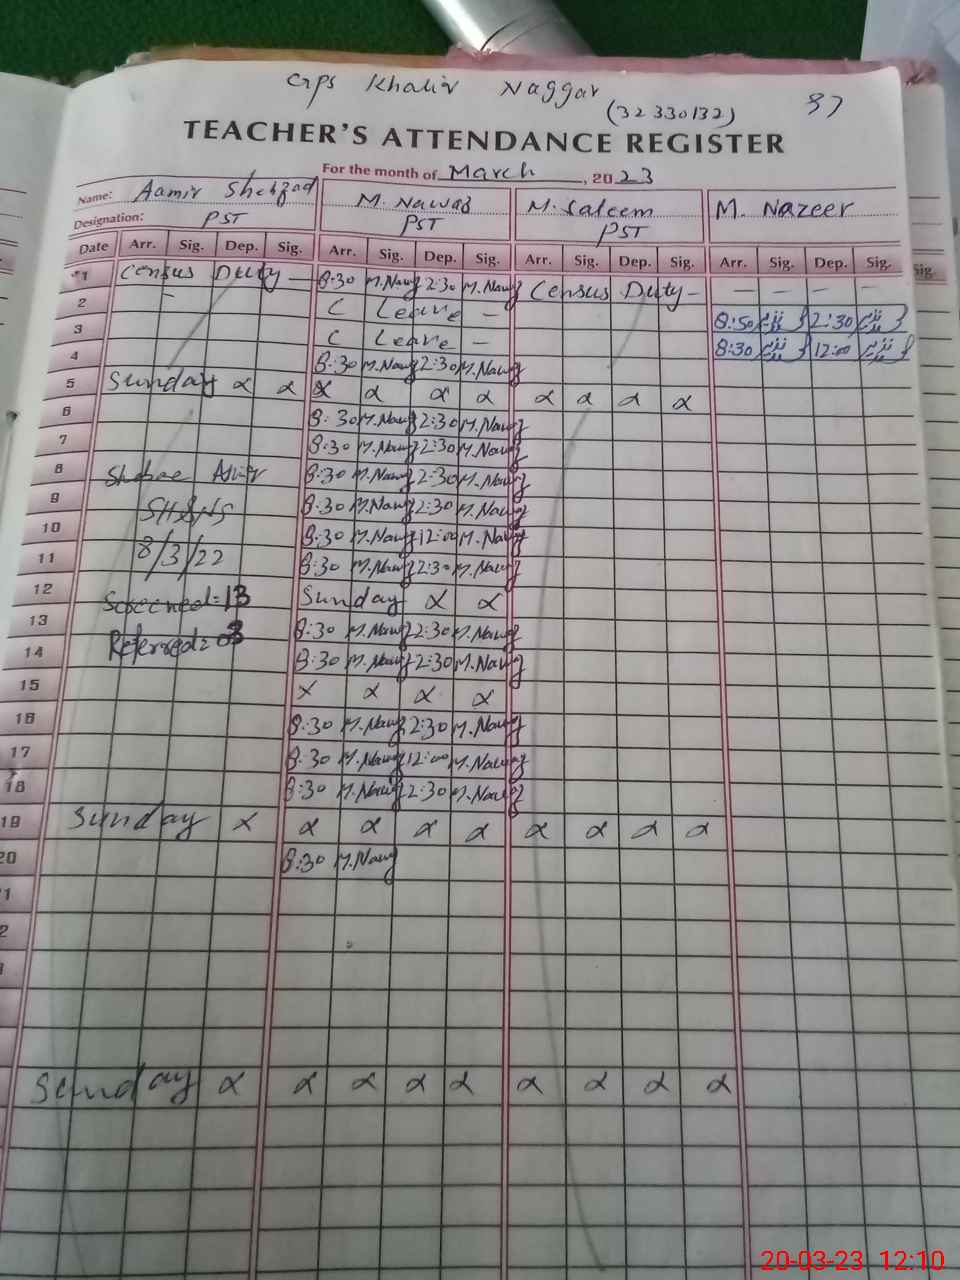 GPS Khalir Naggar
(32330132) 37
TEACHER'S ATTENDANCE REGISTER
For the month of March, 2023
Name: Aamir Shehzad M. Nawab M. Saleem M. Nazeer
Designation: PST PST PST
Date Arr. Sig. Dep. Sig. Arr. Sig. Dep. Sig. Arr. Sig. Dep. Sig. Arr. Sig. Dep. Sig. Sig.
1 Census Duty — 8:30 M.Nawz 2:30 M.Nawz Census Duty - - - - -
2 - C Leave - 8:50 2:30
3 C Leave - 8:30 12:00
4 8:30 M.Nawz 2:30 M.Nawz
5 Sunday α α α α α α α α α α
6 8:30 M.Nawz 2:30 M.Nawz
7 8:30 M.Nawz 2:30 M.Nawz
8 8:30 M.Nawz 2:30 M.Nawz
9 SH&NS 8:30 M.Nawz 2:30 M.Nawz
10 8:30 M.Nawz 12:00 M.Nawz
11 8/3/22 8:30 M.Nawz 2:30 M.Nawz
12 Screened=13 Sunday α α
13 Referred=03 8:30 M.Nawz 2:30 M.Nawz
14 8:30 M.Nawz 2:30 M.Nawz
15 x α α α
16 8:30 M.Nawz 2:30 M.Nawz
17 8:30 M.Nawz 12:00 M.Nawz
18 8:30 M.Nawz 2:30 M.Nawz
19 Sunday α α α α α α α α α
20 8:30 M.Nawz
1
2
Sunday α α α α α α α α α
20-03-23 12:10